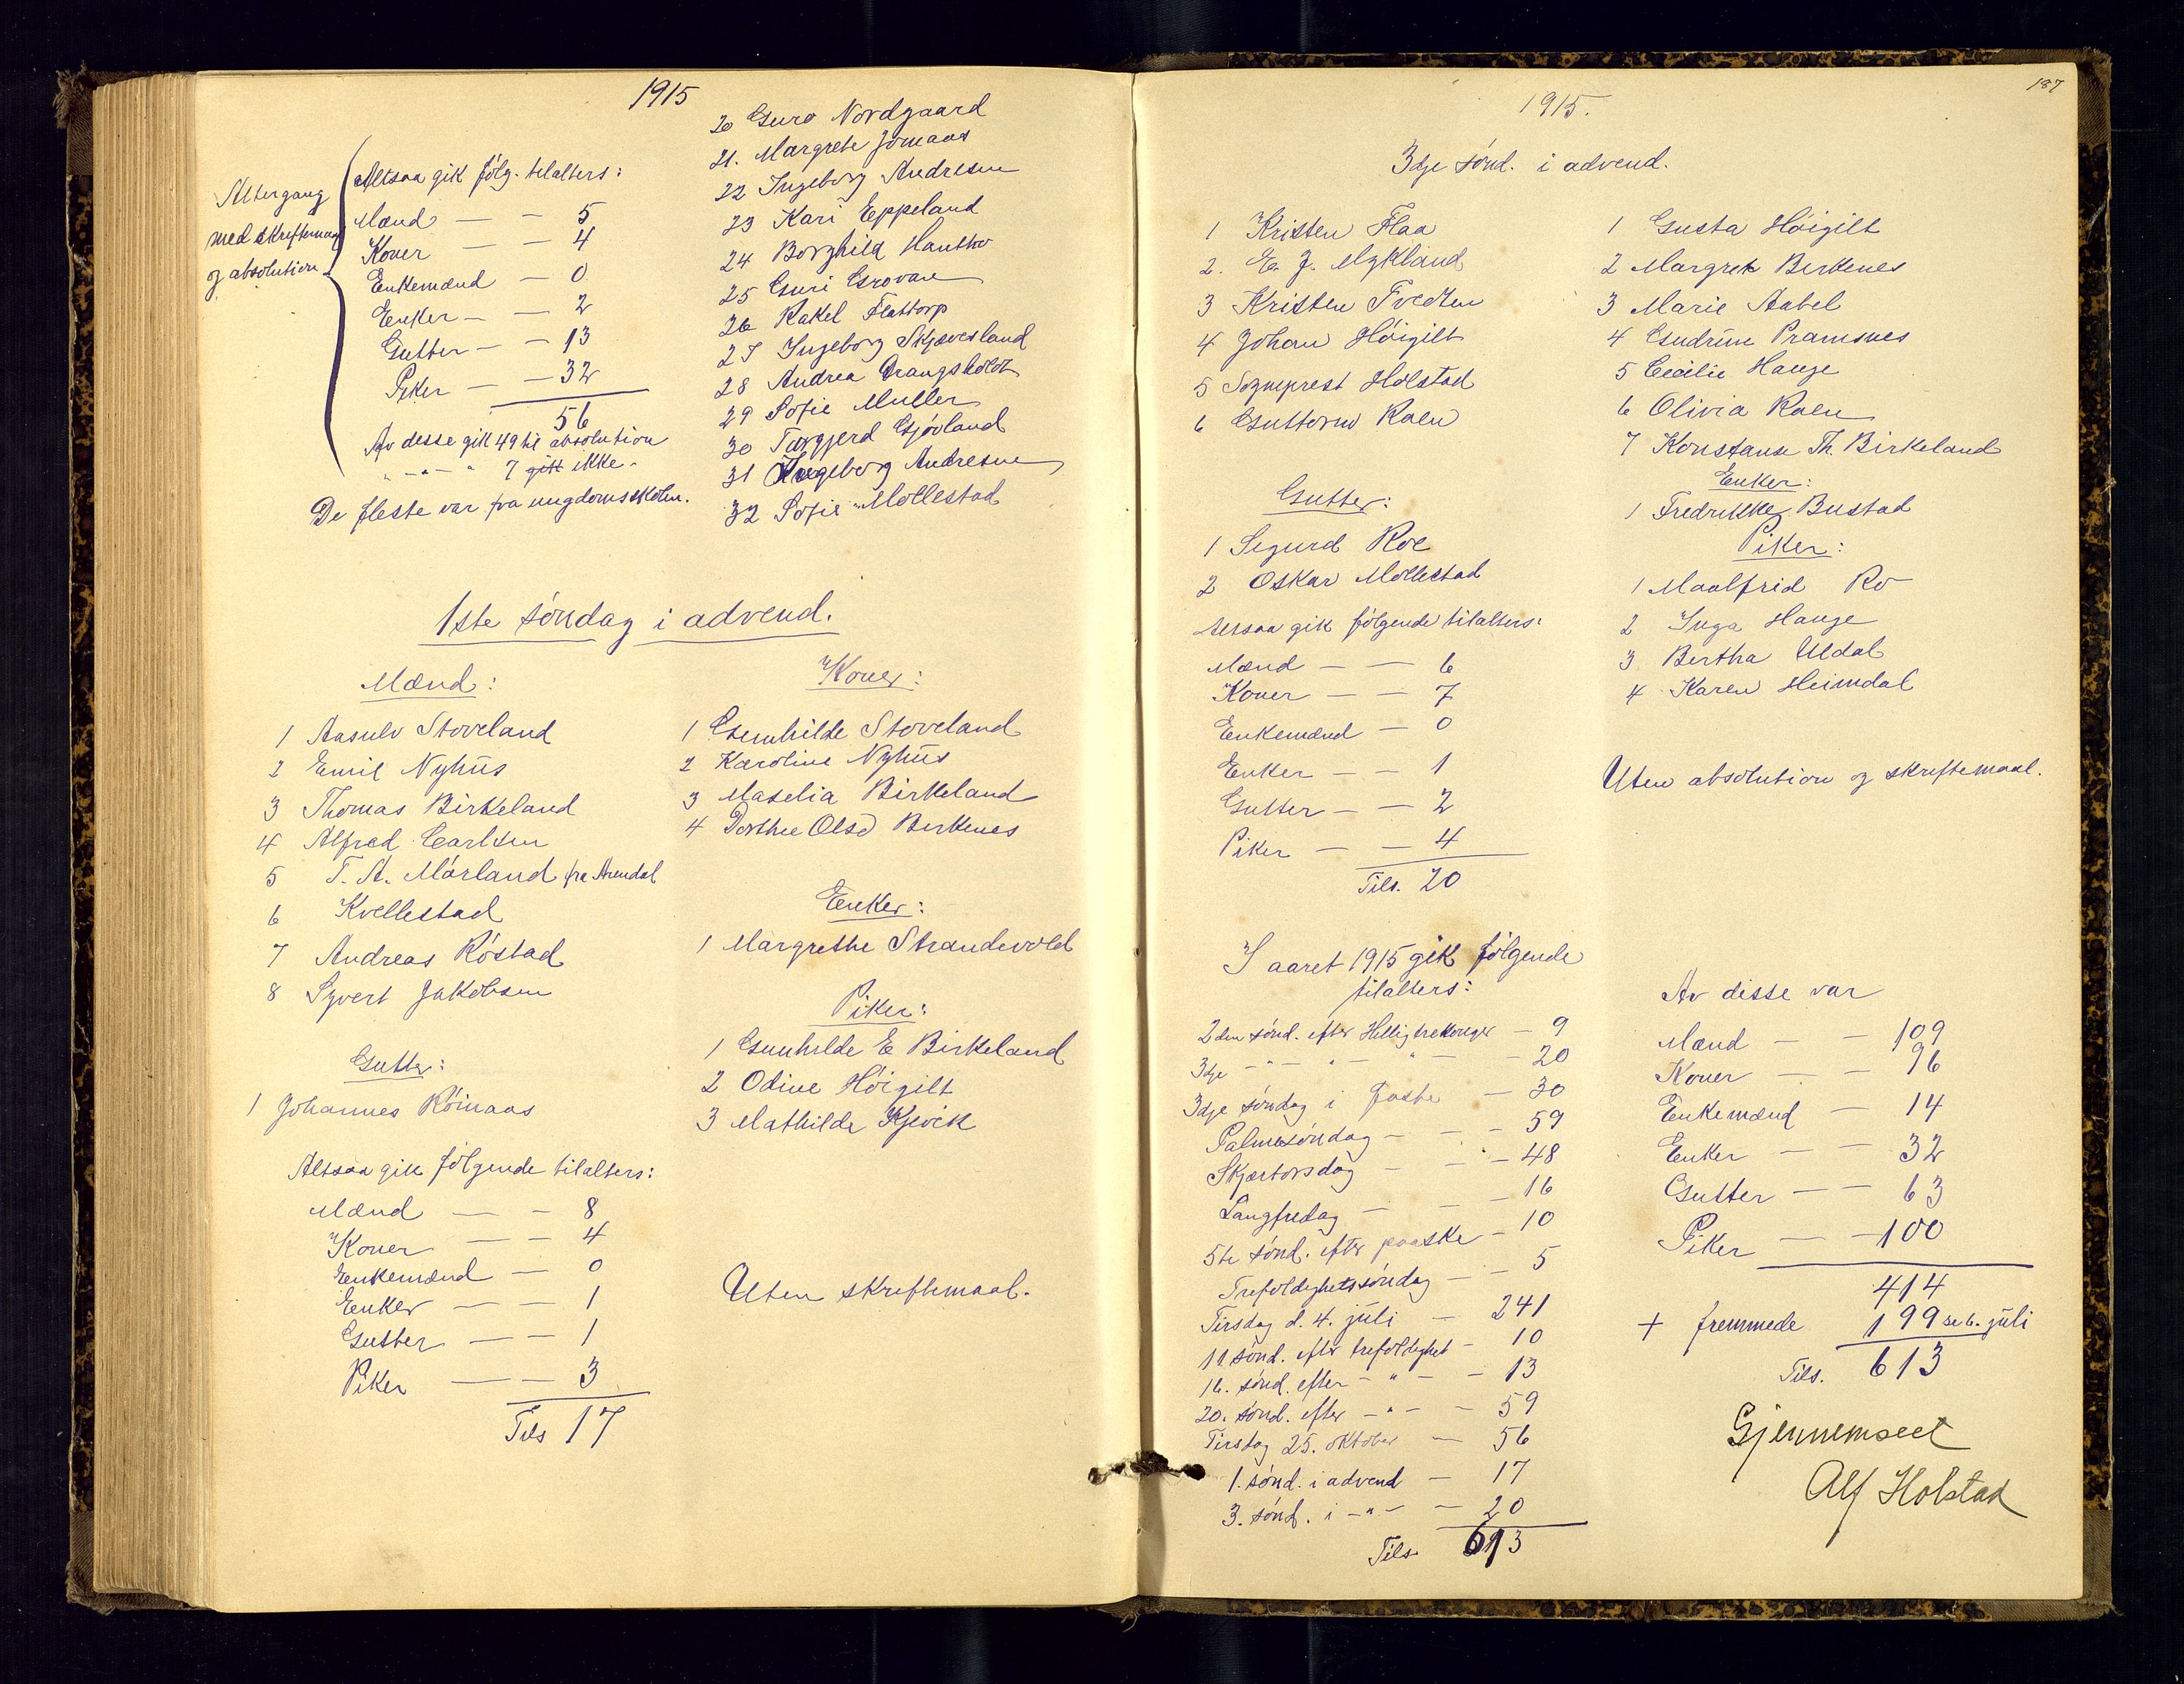 1915
Altergang
med skriftemaal
og absolution
Altsaa gik følg. tilalters:
Mænd — — 5
Koner — — 4
Enkemænd — 0
Enker — — 2
Gutter — — 13
Piker — — 32
56
Av desse gik 49 til absolution
" — " — " 7 gik ikke.
De fleste var fra ungdomsskolen.
20 Guro Nordgaard
21. Margrete Jomaas
22 Ingeborg Andresen
23 Kari Eppeland
24 Borghild
25 Guri Grovan
26 Rakel Flattorp
27 Ingeborg Skjævesland
28 Andrea Drangsholdt
29 Sofie Muller
30 Torgjerd Gjøvland
31 Ingeborg Andresen
32 Sofie Mollestad
1ste søndag i advend.
Mænd:
1 Aasulv Stoveland
2 Emil Nyhus
3 Thomas Birkeland
4 Alfred Carlsen
5 T. A. Mørland fra Arendal
6 Kvellestad
7 Andreas Røstad
8 Syvert Jakobsen
Gutter:
1 Johannes Røinaas
Altsaa gik følgende tilalters:
Mænd — — 8
Koner — — 4
Enkemænd — 0
Enker — — 1
Gutter — — 1
Piker — — 3
Tils 17
Koner:
1 Gunhilde Stoveland
2 Karoline Nyhus
3 Maselia Birkeland
4 Dorthee Olsd Birkenes
Enker:
1 Margrethe Strandevold
Piker:
1 Gunhilde E Birkeland
2 Odine Høigilt
3 Mathilde Kjevik
Uten skriftemaal.
187
1915.
3dje sønd. i advend.
1 Kristen Flaa
2. E. J. Mykland
3 Kristen Tvedten
4 Johan Høigilt
5 Sogneprest Holstad
6 Guttorm Raen
Gutter:
1 Sigurd Roe
2 Oskar Mollestad
Altsaa gik følgende tilalters:
Mænd — — 6
Koner — — 7
Enkemænd — 0
Enker — — 1
Gutter — — 2
Piker — — 4
Tils. 20
1 Gusta Høigilt
2 Margrete Birkenes
3 Marie Aabel
4 Gudrun Pramsnes
5 Cecilie Hauge
6 Olivia Raen
7 Konstanse Th. Birkeland
Enker:
1 Fredrikke Bustad
Piker:
1 Maalfrid Ro
2 Inga Hauge
3 Bertha Uldal
4 Karen Heimdal
Uten absolution og skriftemaal.
I aaret 1915 gik følgende
tilalters:
2den sønd. efter Helligtrekonger — 9
3dje — " — " — " — 20
3dje søndag i faste — 30
Palmesøndag — — 59
Skjærtorsdag — — 48
Langfredag — — 16
5te sønd. efter paaske — 10
Trefoldighetssøndag — — 5
Tirsdag d. 4. juli — 241
11. sønd. efter trefoldighet — 10
16. sønd. efter — " — — 13
20. sønd. efter — " — — 59
Tirsdag 25. oktober — 56
1. sønd. i advend — 17
3. sønd. i — " — — 20
Tils. 613
Av disse var
Mænd — — 109
Koner — — 96
Enkemænd — 14
Enker — — 32
Gutter — — 63
Piker — — 100
414
+ fremmede 199 se 6. juli
Tils. 613
Gjennemseet
Alf Holstad